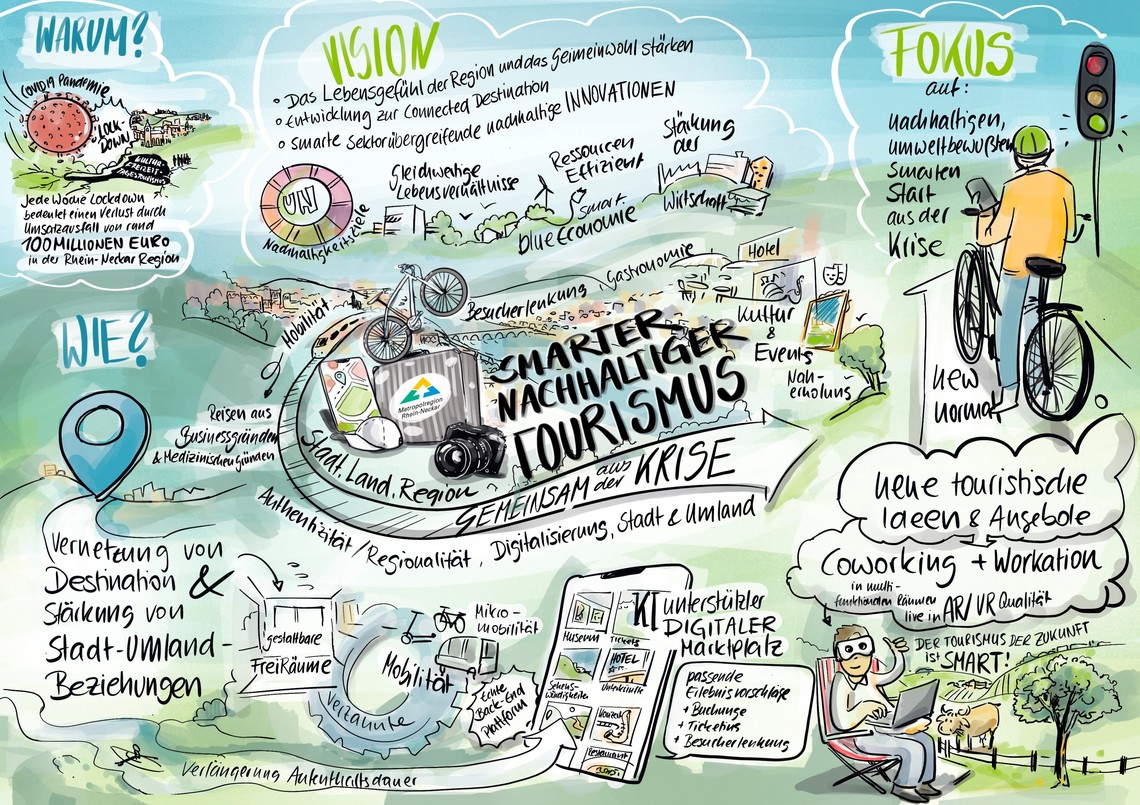 WARUM?
COVID19 Pandemie
LOCK-
DOWN
KULTUR
FREIZEIT-
TAGESTOURISMUS
Jede Woche Lockdown
bedeutet einen Verlust durch
Umsatzausfall von rund
100 MILLIONEN EURO
in der Rhein-Neckar Region
VISION
• Das Lebensgefühl der Region und das Geimeinwohl stärken
• Entwicklung zur Connected Destination
• smarte Sektorübergreifende nachhaltige INNOVATIONEN
UN
Nachhaltigkeitsziele
Gleichwertige
Lebensverhältnisse
Ressourcen
Effizient
smart
blue Economie
Stärkung
der
Wirtschaft
FOKUS
auf:
nachhaltigen,
umweltbewußten
smarten
Start
aus der
Krise
new
normal
WIE?
Mobilität
Besucherlenkung
Gastronomie
Hotel
Kultur
&
Events
Nah-
erholung
SMARTER
NACHHALTIGER
TOURISMUS
Metropolregion
Rhein-Neckar
Reisen aus
Businessgründen
& Medizinischen Gründen
Stadt, Land, Region
GEMEINSAM aus der KRISE
Authentizität / Regionalität, Digitalisierung, Stadt & Umland
Vernetzung von
Destination &
Stärkung von
Stadt-Umland-
Beziehungen
gestaltbare
FreiRäume
Mobilität
verzahnte
Mikro-
mobilität
Echte
Back-End
Plattform
Verlängerung Aufenthaltsdauer
Museum
Tickets
HOTEL
Sehens-
würdigkeiten
Unterkünfte
Konzert
Restaurant
KI unterstützter
DIGITALER
Marktplatz
passende
Erlebnisvorschläge
+ Buchunge
+ Ticketing
+ Besucherlenkung
neue touristische
Ideen & Angebote
Coworking + Workation
in multi-
funktionalen Räumen
live in AR/VR Qualität
DER TOURISMUS DER ZUKUNFT
ist SMART!